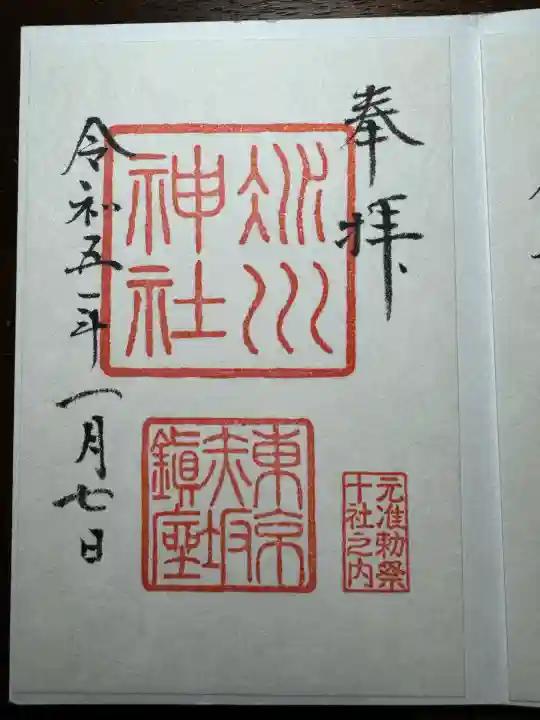 奉拝
氷川
神社
令和五年一月七日
東京
赤坂
鎮座
元准勅祭
十社之内